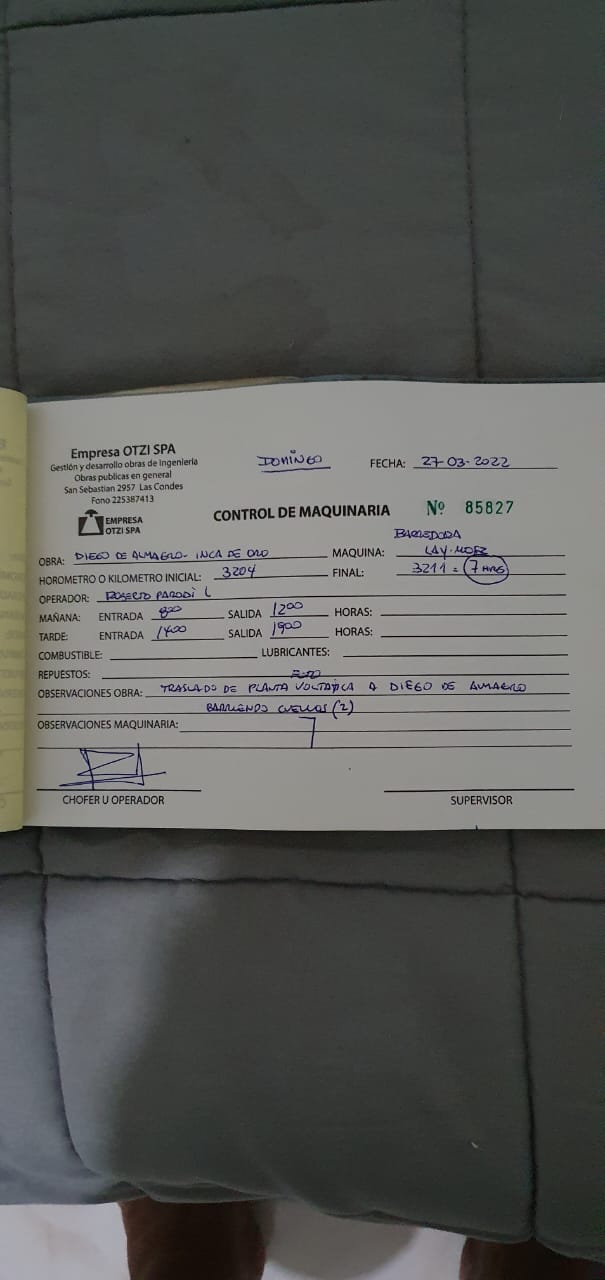 Empresa OTZI SPA
Gestión y desarrollo obras de Ingenieria
Obras publicas en general
San Sebastian 2957 Las Condes
Fono 225387413
EMPRESA
OTZI SPA
DOMINGO
FECHA: 27-03-2022
CONTROL DE MAQUINARIA Nº 85827
BARREDORA
OBRA: DIEGO DE ALMAGRO - INCA DE ORO MAQUINA: LAY-MOR
HOROMETRO O KILOMETRO INICIAL: 3204 FINAL: 3211 = 7 HRS
OPERADOR: ROBERTO PARODI L
MAÑANA: ENTRADA 800 SALIDA 1200 HORAS:
TARDE: ENTRADA 1400 SALIDA 1900 HORAS:
COMBUSTIBLE: LUBRICANTES:
REPUESTOS:
OBSERVACIONES OBRA: TRASLADO DE PLANTA VOLTAICA A DIEGO DE ALMAGRO
BARRIENDO CUELLOS (2)
OBSERVACIONES MAQUINARIA:
CHOFER U OPERADOR SUPERVISOR